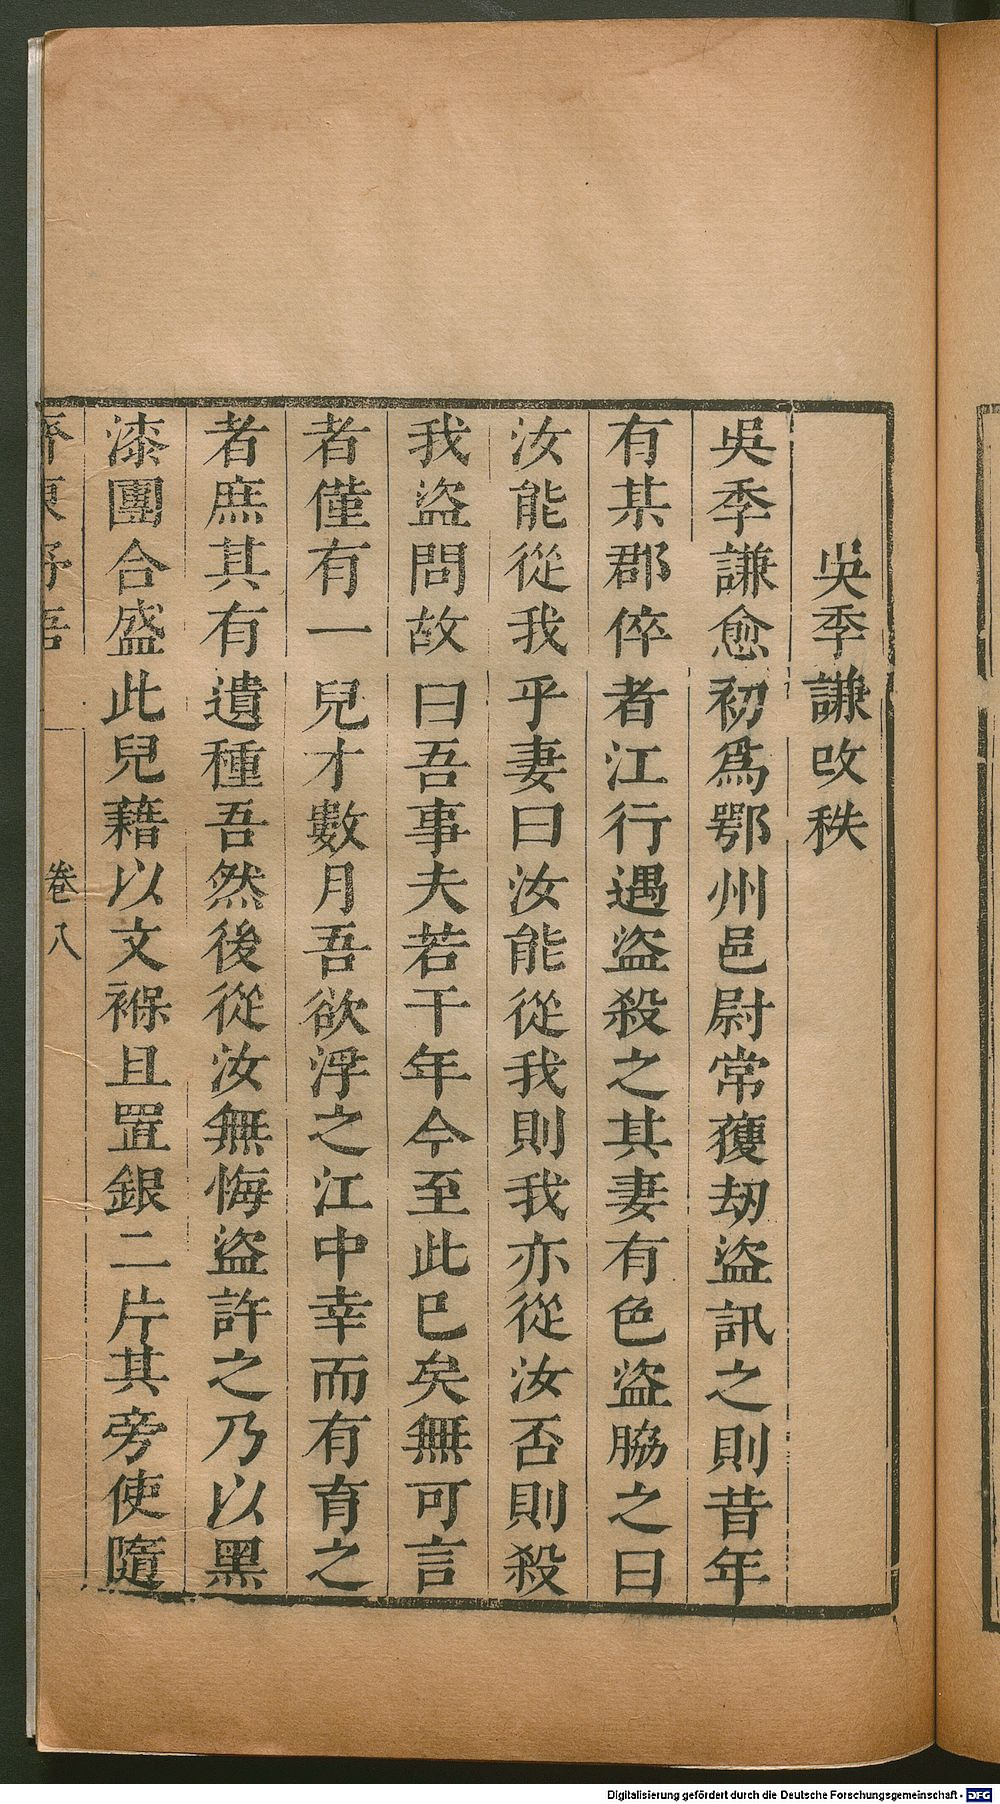 吳季謙改秩
吳季謙愈初爲鄂州邑尉常獲劫盜訊之則昔年
有某郡倅者江行遇盜殺之其妻有色盜脇之曰
汝能從我乎妻曰汝能從我則我亦從汝否則殺
我盜問故曰吾事夫若干年今至此巳矣無可言
者僅有一兒才數月吾欲浮之江中幸而有育之
者庶其有遺種吾然後從汝無悔盜許之乃以黑
漆團合盛此兒藉以文褓且置銀二片其旁使隨
齊東野語
卷八
Digitalisierung gefördert durch die Deutsche Forschungsgemeinschaft - DFG